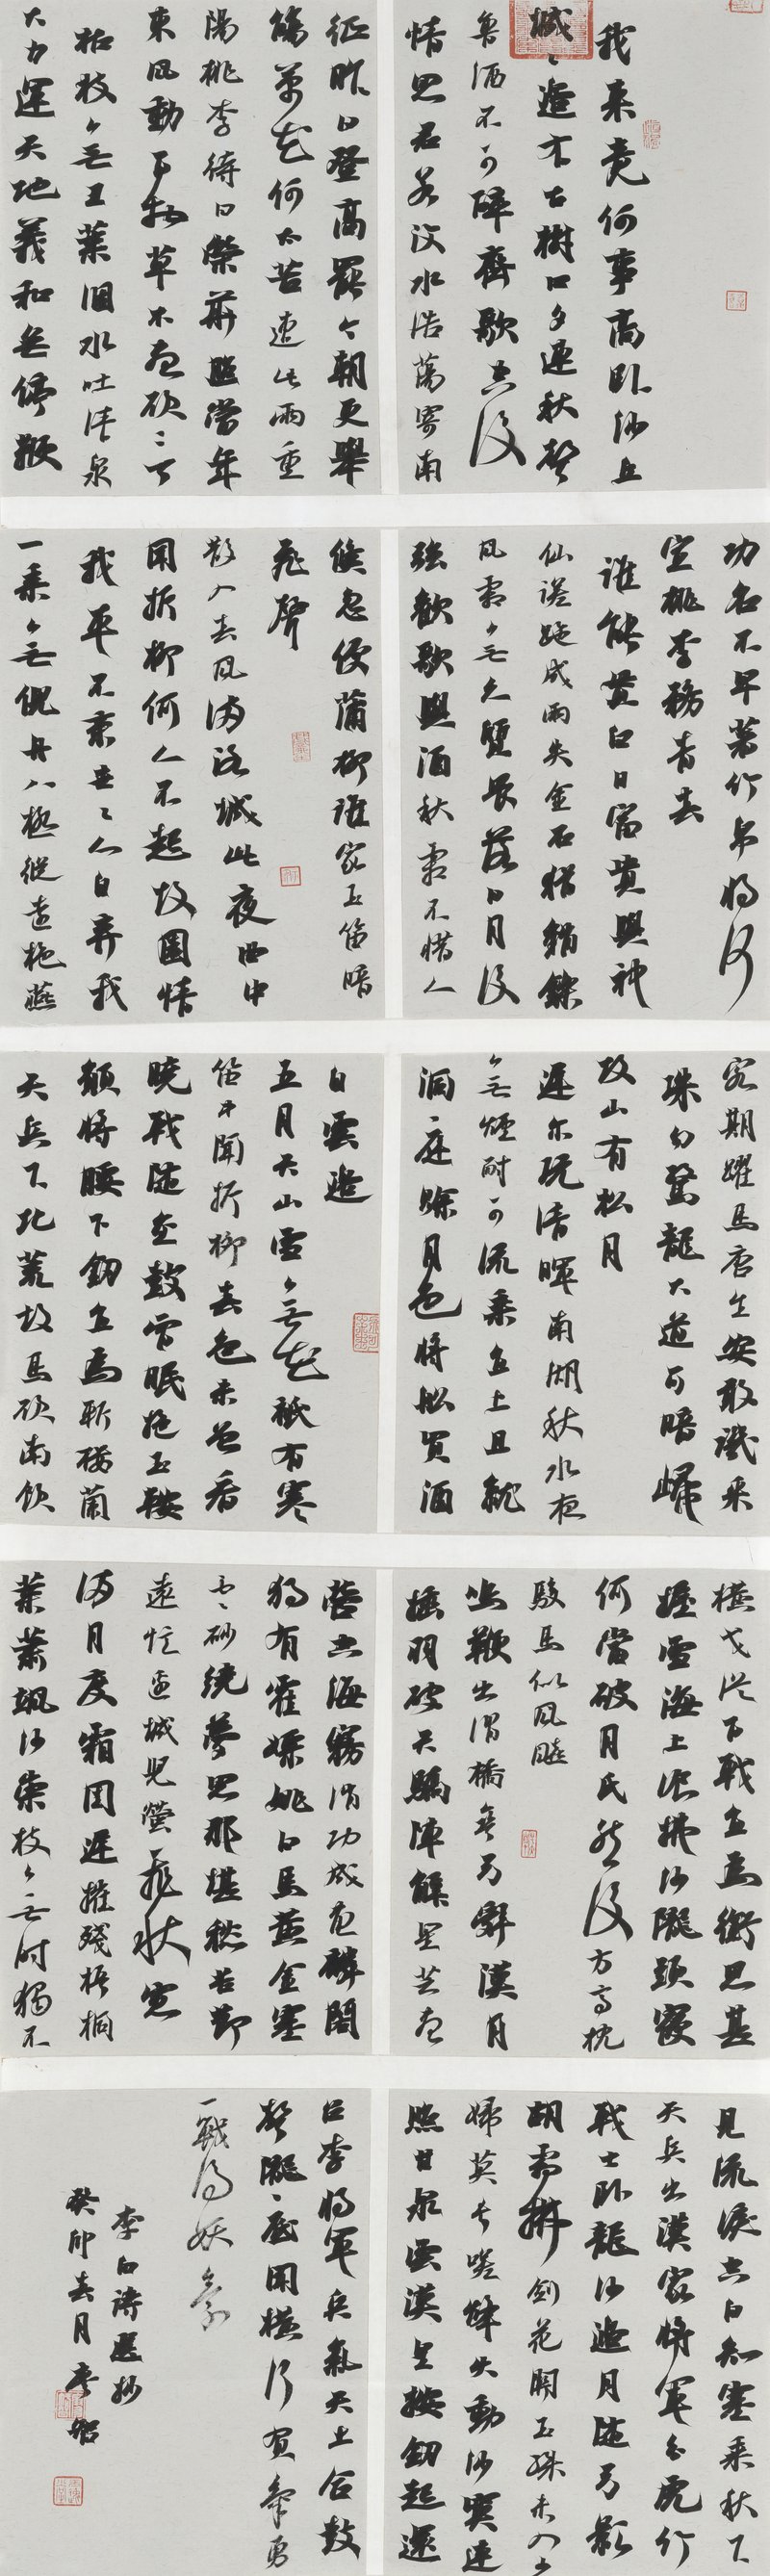 我來竟何事高臥沙丘
城城邊有古樹日夕連秋聲
魯酒不可醉齊歌空復
情思君若汶水浩蕩寄南
征昨日登高罷今朝更舉
觴菊花何太苦遭此兩重
陽桃李待日榮華照當年
東風動百物草木盡欲言
枯枝無丑葉涸水吐清泉
大力運天地羲和無停鞭
功名不早著竹帛將何
宣桃李務青春
誰能貰白日富貴與神
仙蹉跎成兩失金石猶銷鑠
風霜無久質畏落日月後
強歡歌與酒秋霜不惜人
倏忽侵蒲柳誰家玉笛暗
飛聲
散入春風滿洛城此夜曲中
聞折柳何人不起故園情
我本不棄世世人自棄我
一乘無倪舟八極縱遠柂燕
客期躍馬唐生安敢譏采
珠勿驚龍大道可暗歸
故山有松月
遲爾玩清暉南湖秋水夜
無煙耐可流乘直上且就
洞庭賒月色將船買酒
白雲邊
五月天山雪無花祇有寒
笛中聞折柳春色未曾看
曉戰隨金鼓宵眠抱玉鞍
願將腰下劍直為斬樓蘭
天兵下北荒胡馬欲南飲
橫戈從百戰直為銜恩甚
握雪海上餐拂沙隴頭寢
何當破月氏然後方高枕
駿馬似風飆
鳴鞭出渭橋彎弓辭漢月
插羽破天驕陣解星芒盡
營空海霧消功成畫麟閣
獨有霍嫖姚白馬黃金塞
雲砂繞夢思那堪愁苦節
遠憶邊城兒螢飛秋窗
滿月度霜閨遲摧殘梧桐
葉蕭颯沙棠枝無時獨不
見流淚空自知塞乘秋下
天兵出漢家將軍分虎竹
戰士臥龍沙邊月隨弓影
胡霜拂劍花關玉殊未入少
婦莫長嗟烽火動沙漠連
照甘泉雲漢皇按劍起還
召李將軍兵氣天上合鼓
聲隴底聞橫行負氣勇
一戰淨妖氛
李白詩選抄
癸卯春月